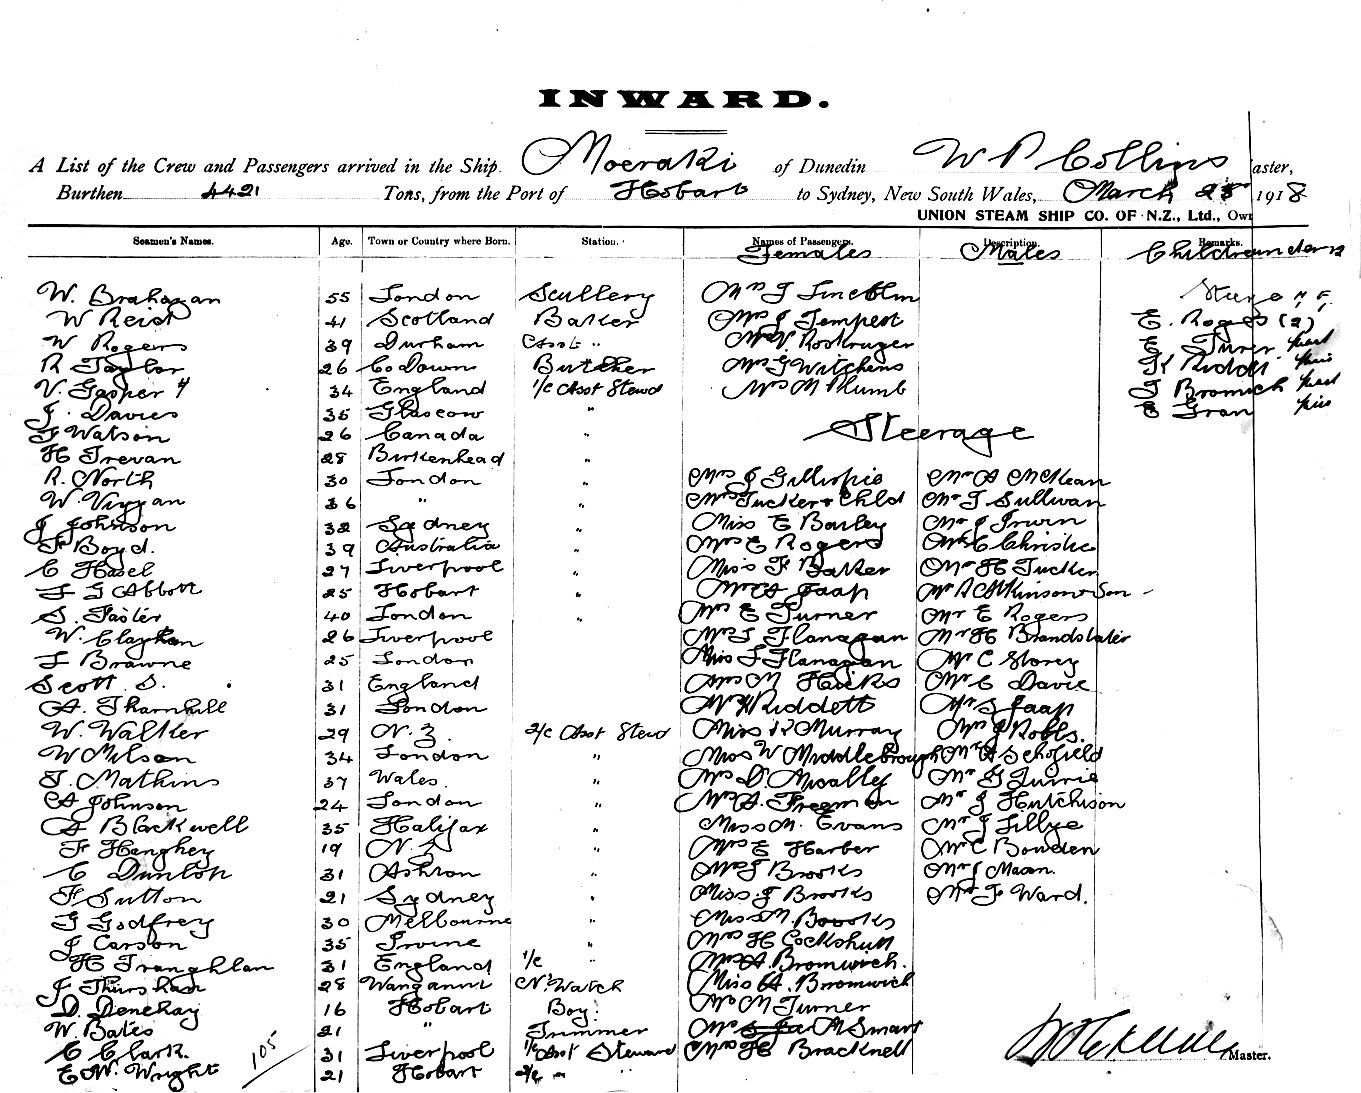 INWARD.
A List of the Crew and Passengers arrived in the Ship Moeraki of Dunedin W P Collins aster,
Burthen 4421 Tons, from the Port of Hobart to Sydney, New South Wales, March 25 1918
UNION STEAM SHIP CO. OF N.Z., Ltd., Own
Seamen's Names. Age. Town or Country where Born. Station. Names of Passengers. Description. Remarks.
Females Males Children under 12
W. Brahagan 55 London Scullery Mrs J Lincoln
W Reid 41 Scotland Baker Mrs J Tempest E. Rogers (2)
W Rogers 39 Durham Asst " E Turner
R Taylor 26 Co Down Butcher Mrs G Witchens K Riddit
V. Gasper 4 34 England 1/c Asst Stewd Mrs M Plumb J Bromich
J. Davies 35 Glascow " E Gran
F Watson 26 Canada " Steerage
H Trevan 28 Birkenhead "
R. North 30 London " Mrs J Gillispie Mr A McKean
W. Vivyan 36 " " Mrs Tucker & Child Mr T Sullivan
J Johnson 32 Sydney " Miss E Barley Mr J Irwin
F Boyd. 39 Australia " Mrs E Rogers Mr C Christie
C Hasel 27 Liverpool " Miss F Baker Mr H Tucker
F G Abbott 25 Hobart " Mrs A Jaap Mr R Atkinson & Son
S. Taster 40 London " Mrs E Turner Mr E Rogers
W. Clayton 26 Liverpool Mrs J Flanagan Mr H Brandstater
F Browne 25 London Miss F Flanagan Mr C Storey
Scott S. 31 England Mrs M Hicks Mr C Davie
A. Thornhill 31 London Mr H Riddett Mr S Jaap
W. Walker 29 N.Z. 2/c Asst Stewd Miss K Murray Mr J Robbs.
W Wilson 34 London " Miss W Middlebrough Mr A Schofield
T. Mathins 37 Wales. " Mrs D. Mcally
A Johnson 24 London " Mrs A. Freeman Mr J Hutchison
A Blackwell 35 Halifax " Miss M. Evans Mr J Lillye
F Henghey 19 N.Z " Mrs E Harber Mr C Bowden
C Dunlop 31 Ashton " Mrs J Brooks Mr J Mason.
F Sutton 21 Sydney " Miss J Brooks Mr F Ward.
G Godfrey 30 Melbourne " Miss M. Brooks
J Carson 35 Irvine " Mrs H Cockshutt
H Tranghlan 31 England 1/c " Mrs A. Bromwich.
J Thurshan 28 Wanganui N. Watch Miss A. Bromwich
D. Denehay 16 Hobart Boy. Mr M Turner
W. Bates 21 " Trimmer M Smart
C Clark. 31 Liverpool 1/c Asst Steward Mrs H Bracknell
E.W. Wright 21 Hobart 2/c "
105
Master.